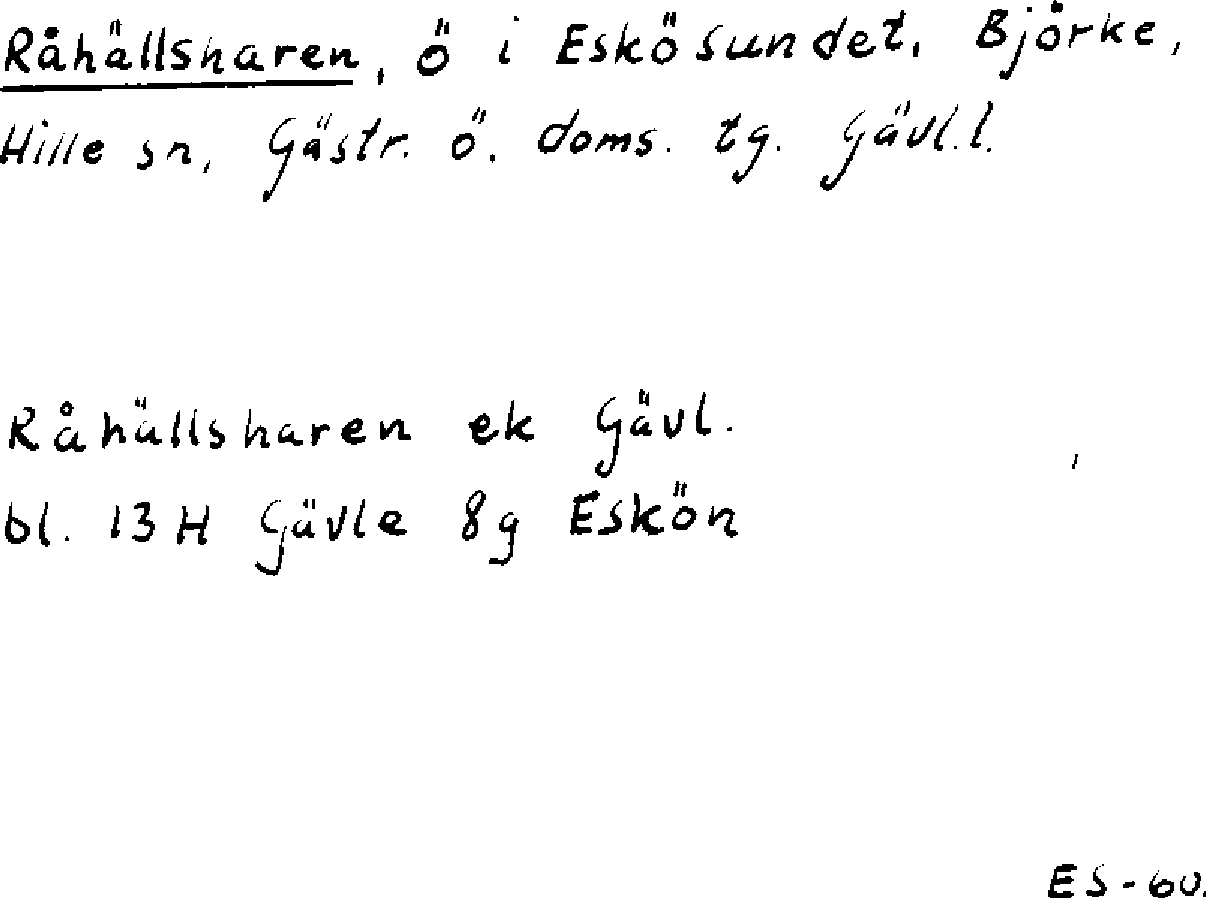 Råhällsharen, ö i Eskösundet, Björke,
Hille sn, Gästr. ö. doms. tg. Gävl.l.
Råhällsharen ek Gävl.
bl. 13H Gävle 8g Eskön
ES-60.